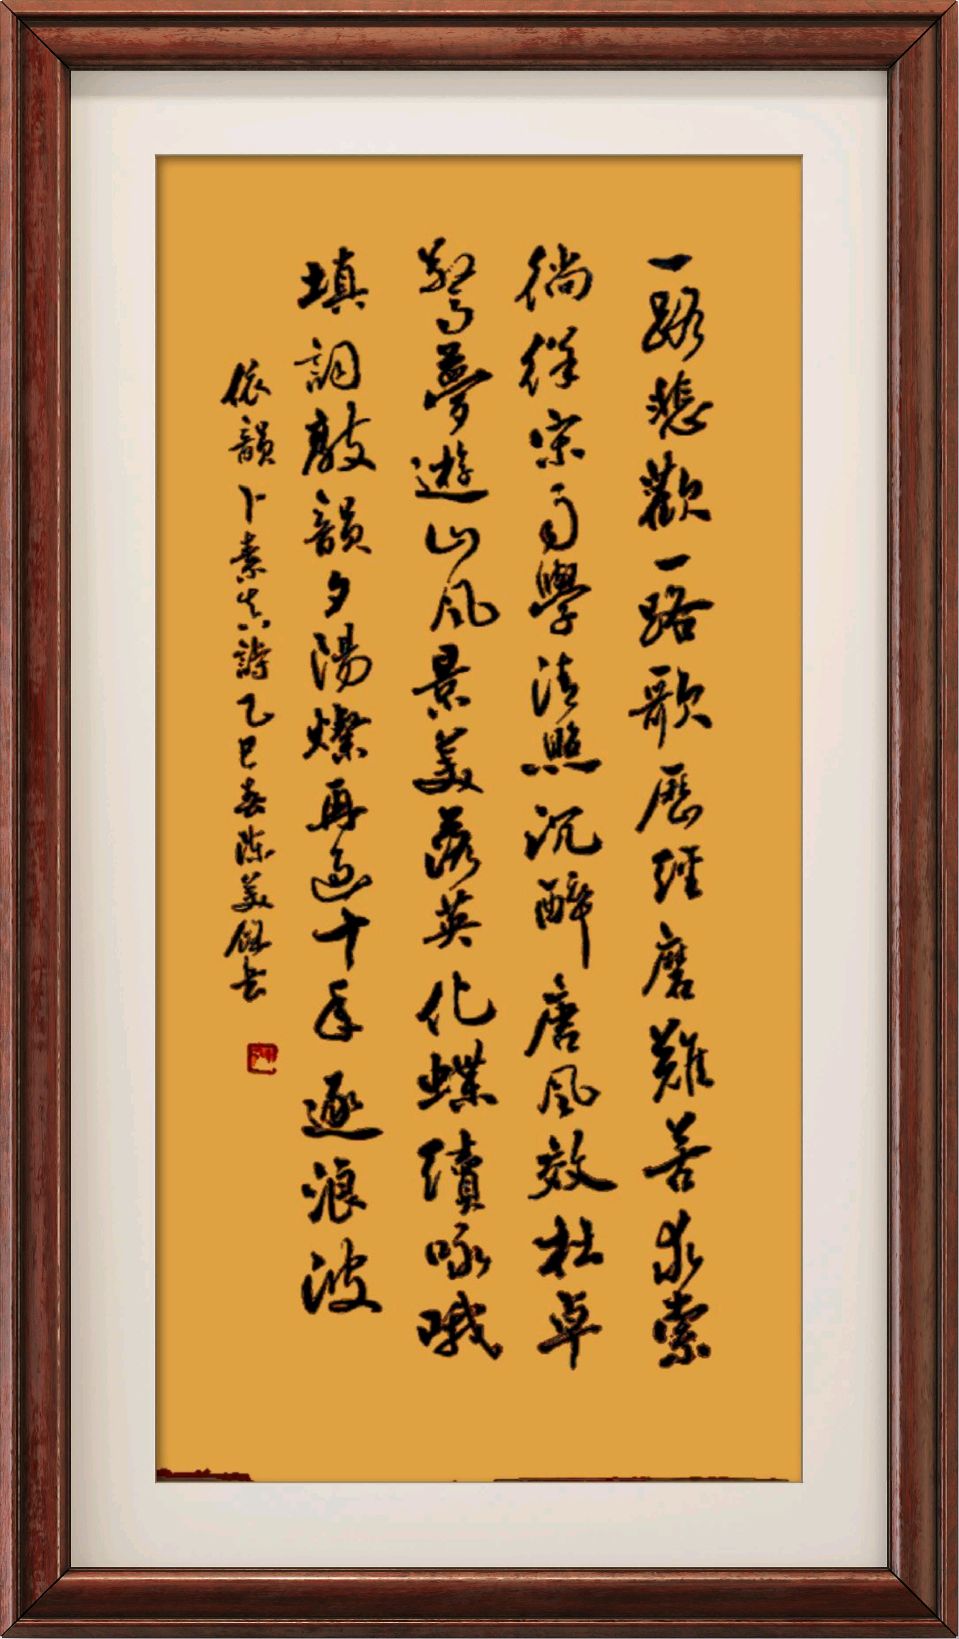 一路悲歡一路歌歷經磨難苦求索
徜徉宋雨學清照沉醉唐風效杜卓
驚夢遊山風景美落英化蝶續咏哦
填詞敲韻夕陽燦再過十年逐浪波
依韻卜素真詩乙巳春陈美书